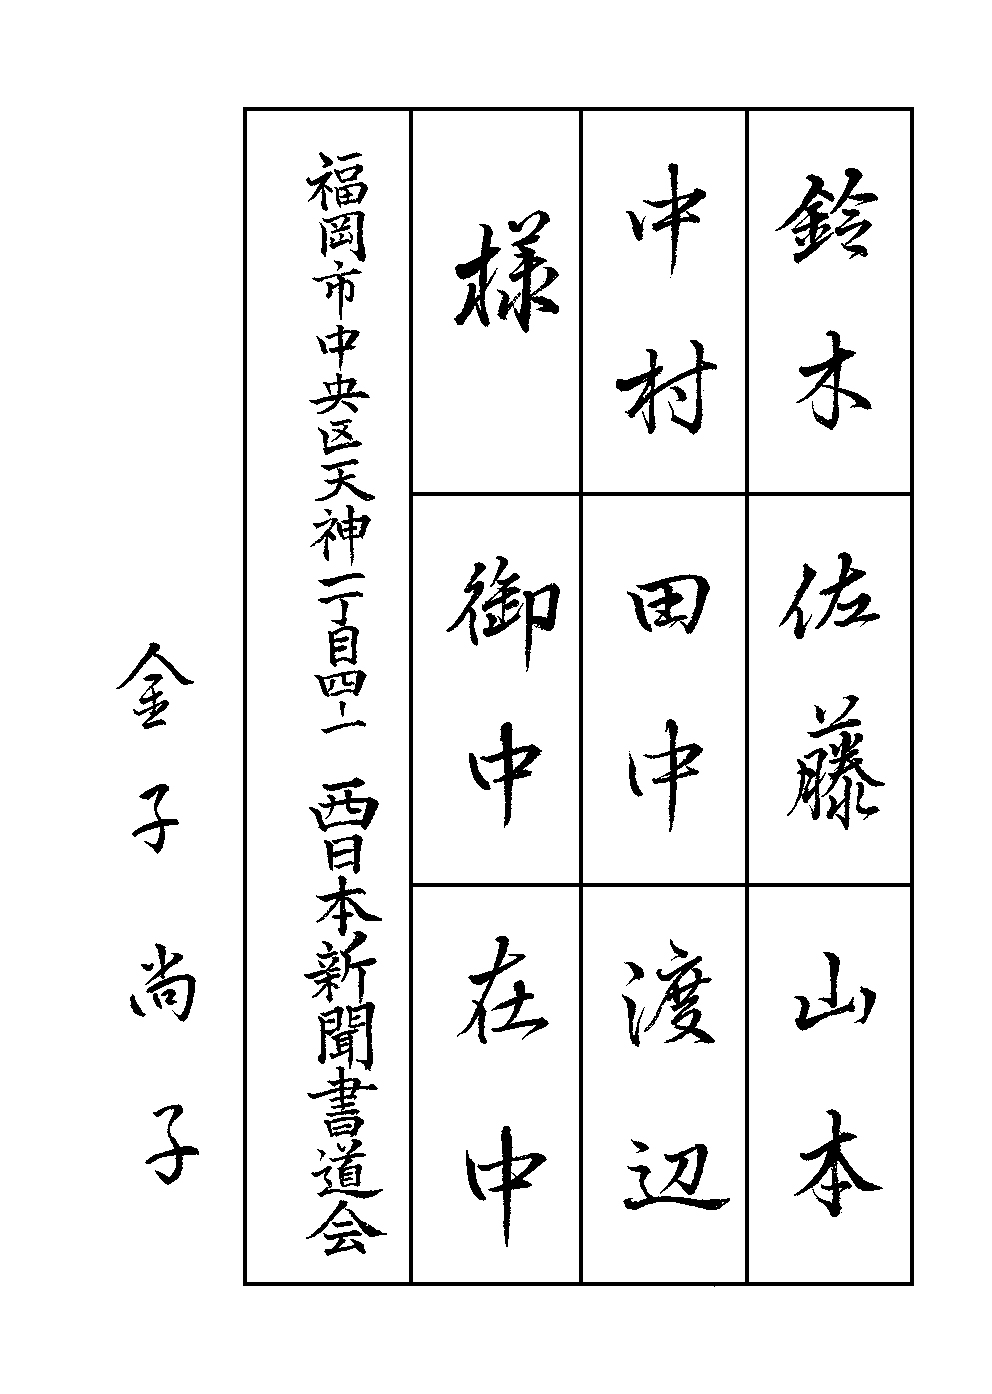 鈴木
佐藤
山本
中村
田中
渡辺
様
御中
在中
福岡市中央区天神一丁目四ー一 西日本新聞書道会
金子尚子